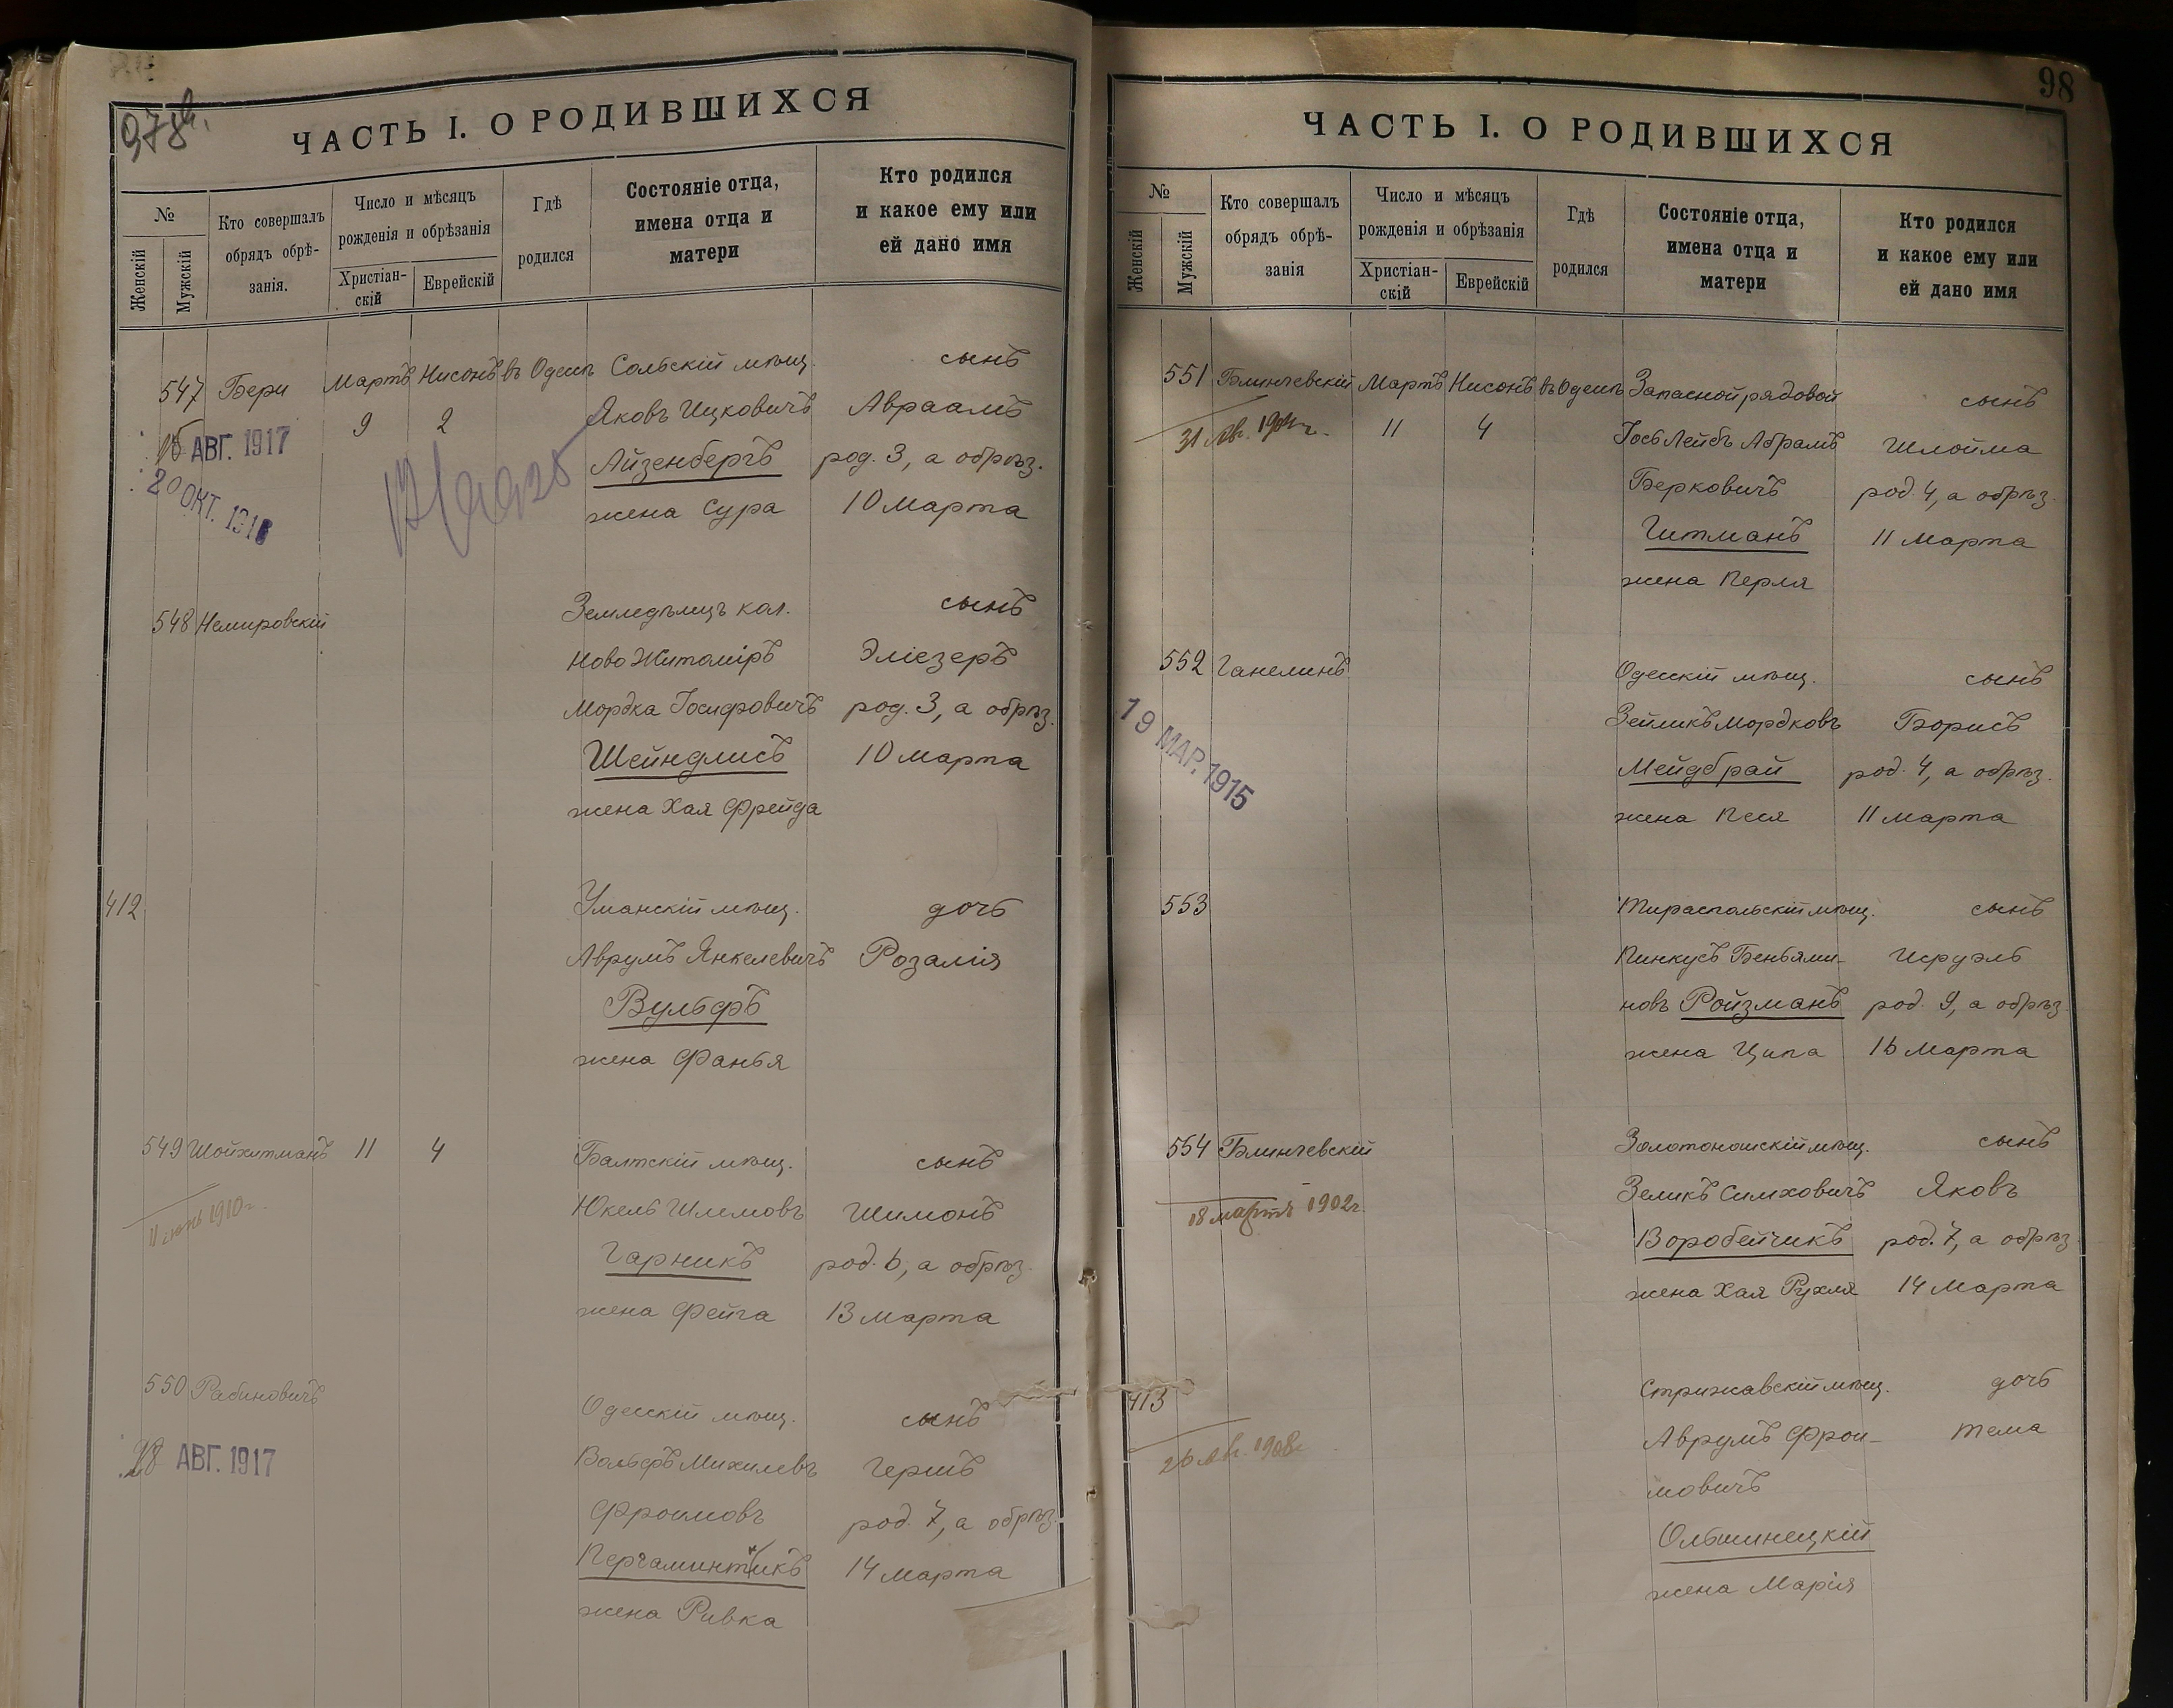 978
ЧАСТЬ I. О РОДИВШИХСЯ
№
Женскій
Мужскій
Кто совершалъ
обрядъ обрѣ-
занія.
Число и мѣсяцъ
рожденія и обрѣзанія
Христіан-
скій
Еврейскій
Гдѣ
родился
Состояніе отца,
имена отца и
матери
Кто родился
и какое ему или
ей дано имя
547 Бери Мартъ Нисонъ въ Одессѣ Сольскій мѣщ. сынъ
9 2 Яковъ Ицковичъ Авраамъ
АВГ. 1917
Айзенбергъ род. 3, а обрѣз.
20 ОКТ.
жена Сура 10 Марта
548 Немировскій Земледѣлецъ кол. сынъ
Ново Житоміръ Эліезеръ
Мордка Іосифовичъ род. 3, а обрѣз.
Шейндлисъ 10 Марта
жена Хая Фрейда
412 Уманскій мѣщ. дочь
Аврумъ Янкелевичъ Розалія
Вульфъ
жена Фанья
549 Шойхитманъ 11 4 Балтскій мѣщ. сынъ
Юкель Шлемовъ Шимонъ
1910 г.
Гарникъ род. 6, а обрѣз.
жена Фейга 13 Марта
550 Рабиновичъ Одесскій мѣщ. сынъ
28 АВГ. 1917
Вольфъ Михилевъ Гершъ
Фроимовъ род. 7, а обрѣз.
Пергаминтикъ 14 Марта
жена Ривка
98
ЧАСТЬ I. О РОДИВШИХСЯ
№
Женскій
Мужскій
Кто совершалъ
обрядъ обрѣ-
занія
Число и мѣсяцъ
рожденія и обрѣзанія
Христіан-
скій
Еврейскій
Гдѣ
родился
Состояніе отца,
имена отца и
матери
Кто родился
и какое ему или
ей дано имя
551 Блинчевскій Мартъ Нисонъ въ Одессѣ Запасной рядовой сынъ
31 Авг. 11 4 Іось Лейбъ Абрамъ Шлойма
Берковичъ род. 4, а обрѣз.
Гитманъ 11 Марта
жена Перля
552 Ганелинъ Одесскій мѣщ. сынъ
Зейликъ Мордковъ Борисъ
19 МАР. 1915
Мейдбрай род. 4, а обрѣз.
жена Песя 11 Марта
553 Тираспольскій мѣщ. сынъ
Пинкусъ Беньями- Исруэль
новъ Ройзманъ род. 9, а обрѣз.
жена Ципа 16 Марта
554 Блинчевскій Золотоношскій мѣщ. сынъ
Зеликъ Симховичъ Яковъ
18 мартъ 1902 г.
Воробейчикъ род. 7, а обрѣз.
жена Хая Рухля 14 Марта
413 Стрижавскій мѣщ. дочь
Аврумъ Фрои- Тема
26 Авг. 1908 г.
мовичъ
Ольшинецкій
жена Марія